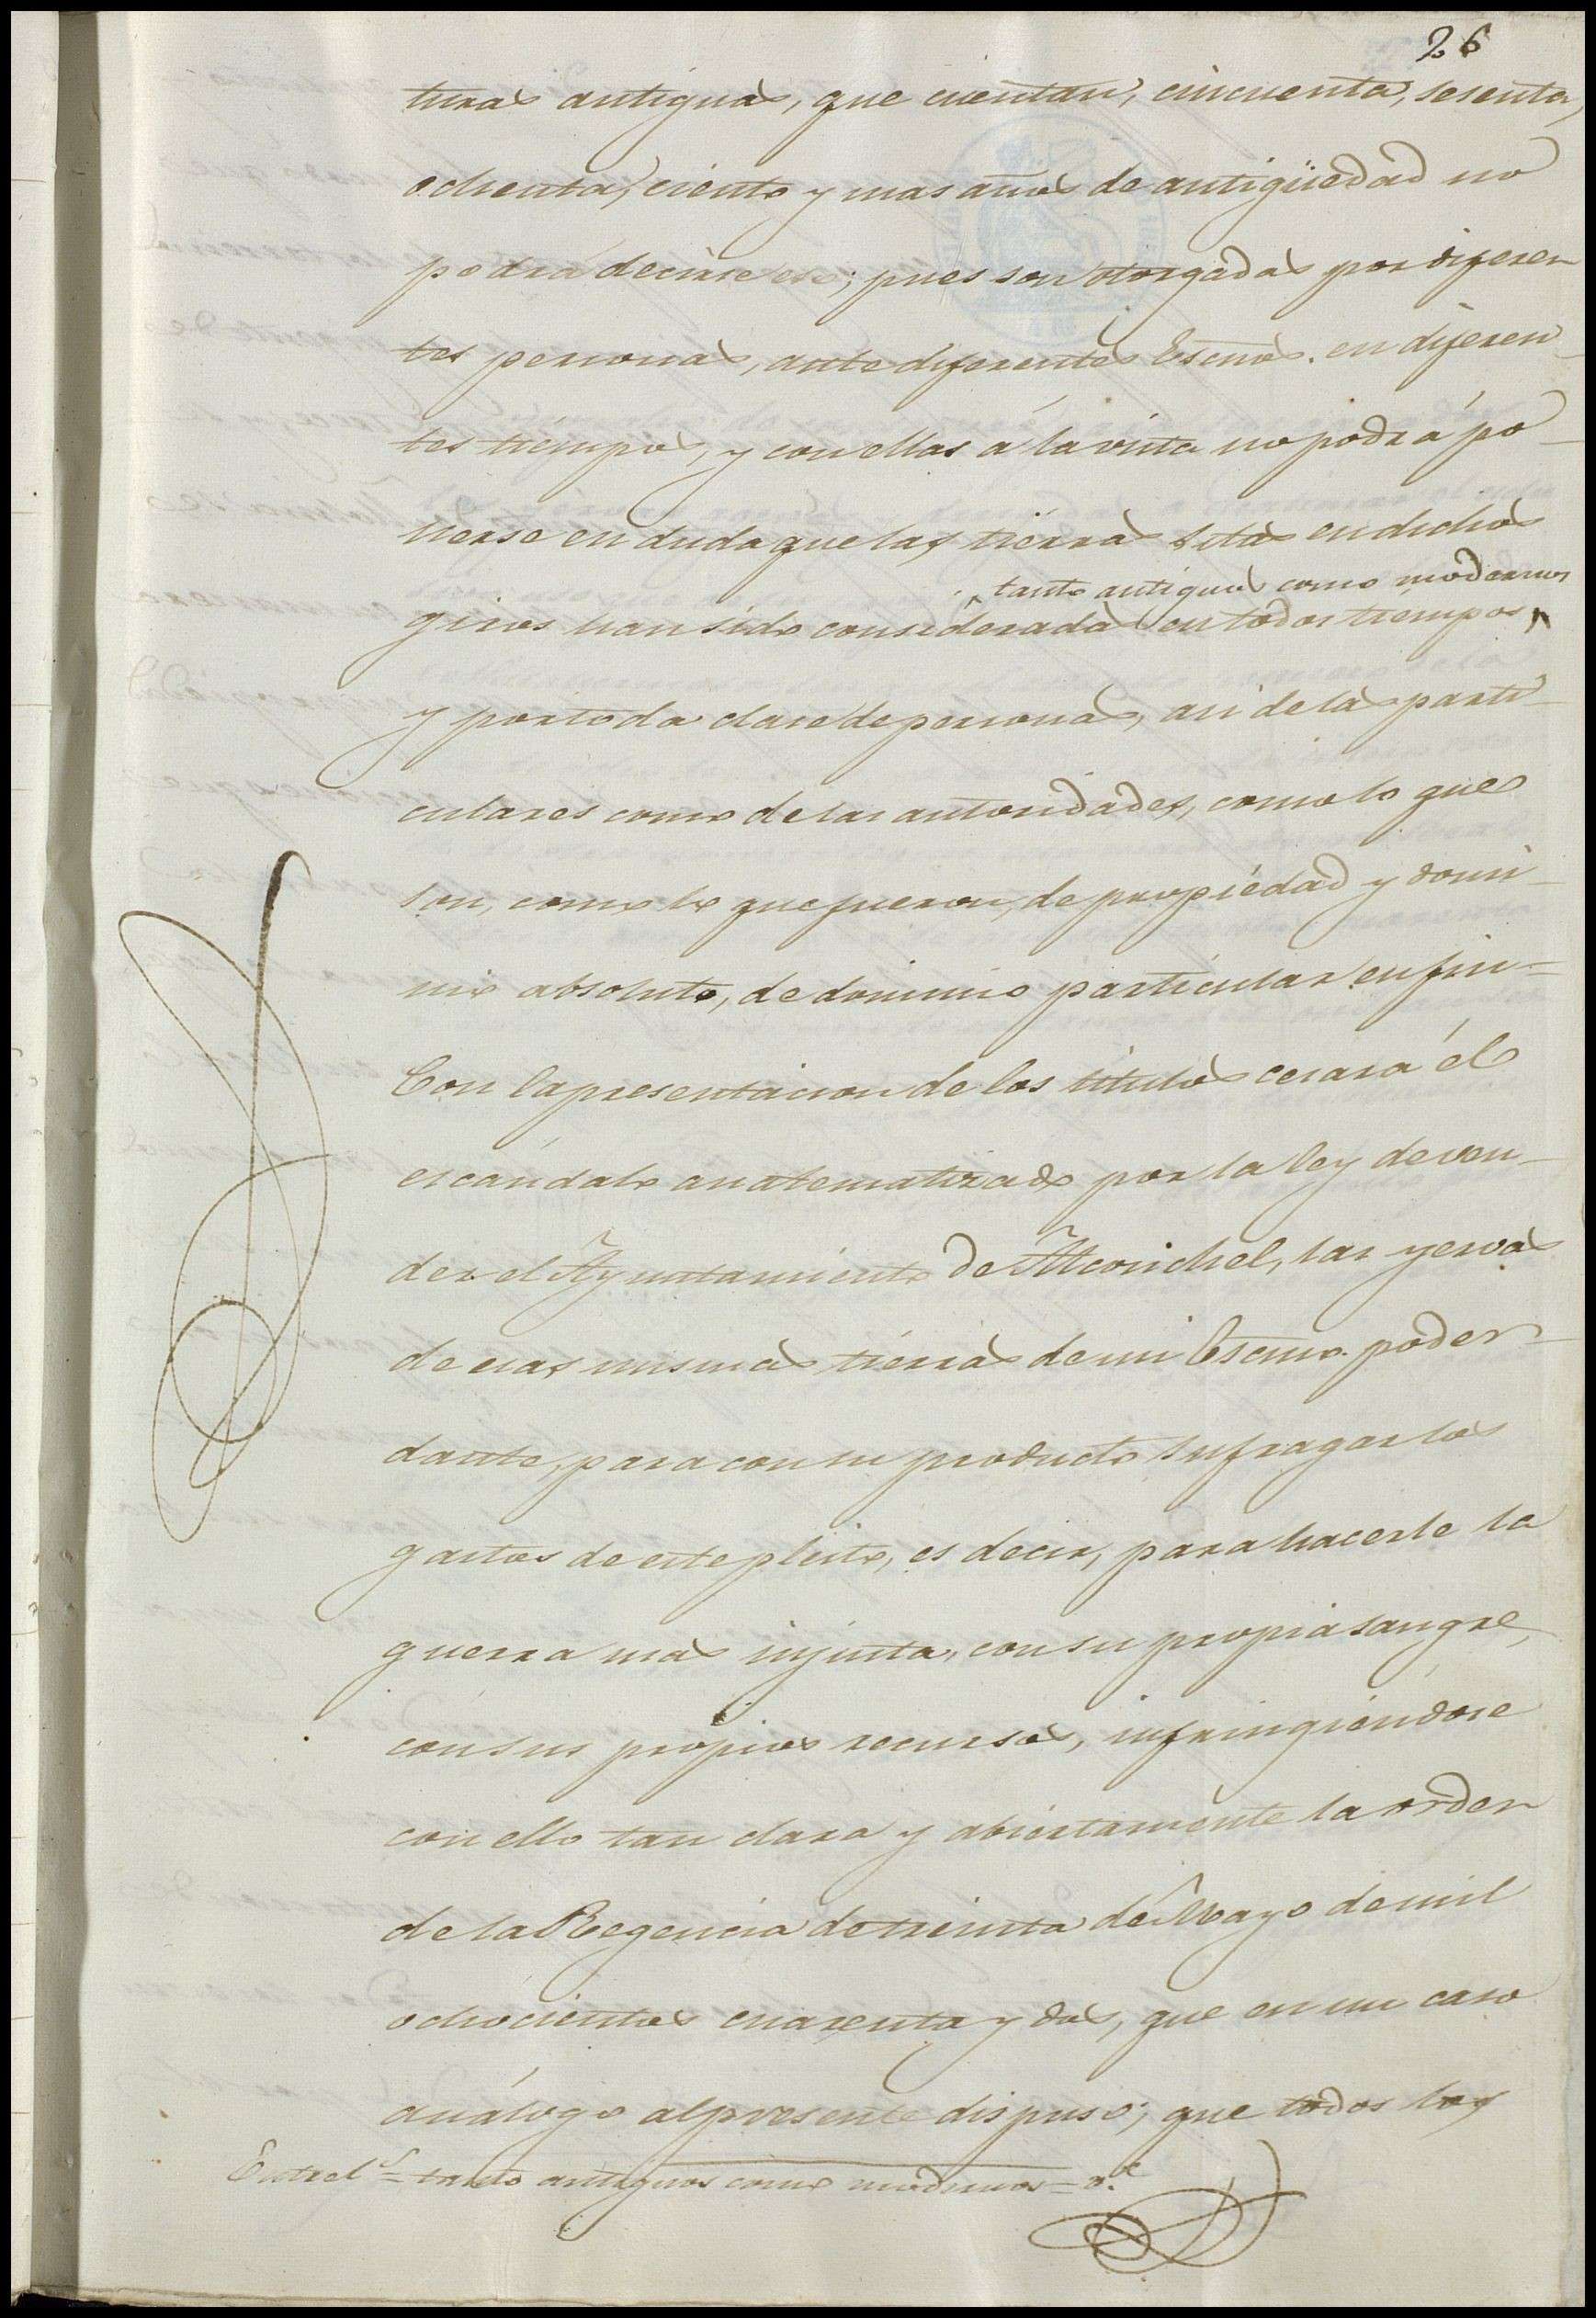 26
turas antiguas, que cuentan, cincuenta, sesenta,
ochenta, ciento y mas años de antigüedad no
podrá decirse eso; pues son otorgadas por diferen
tes personas, ante diferentes Esc̃nos. en diferen-
tes tiempos, y con ellas á la vista no podrá po-
nerse en duda que las tierras sitas en dichos
tanto antiguos como modernos
giros han sido consideradas en todos tiempos
y por toda clase de personas, asi de las parti-
culares como de las autoridades, como lo que
son, como lo que fueron, de propiedad y domi-
nio absoluto, de dominio particular en fin=
Con la presentacion de los titulos cesará el
escándalo anatematizado por la ley de ven-
der el Ayuntamiento de Alconchel, las yervas
de esas mismas tierras de mi Escmo. poder-
dante, para con su producto sufragar los
gastos de este pleito, es decir, para hacerle la
guerra mas injusta, con su propia sangre,
con sus propios recursos, infringiéndose
con ello tan clara y abiertamente la orden
de la Regencia de treinta de Mayo de mil
ochocientos cuarenta y dos, que en un caso
análogo al presente dispuso; que todos los
Entrel.s = tanto antiguos como modernos = v.e